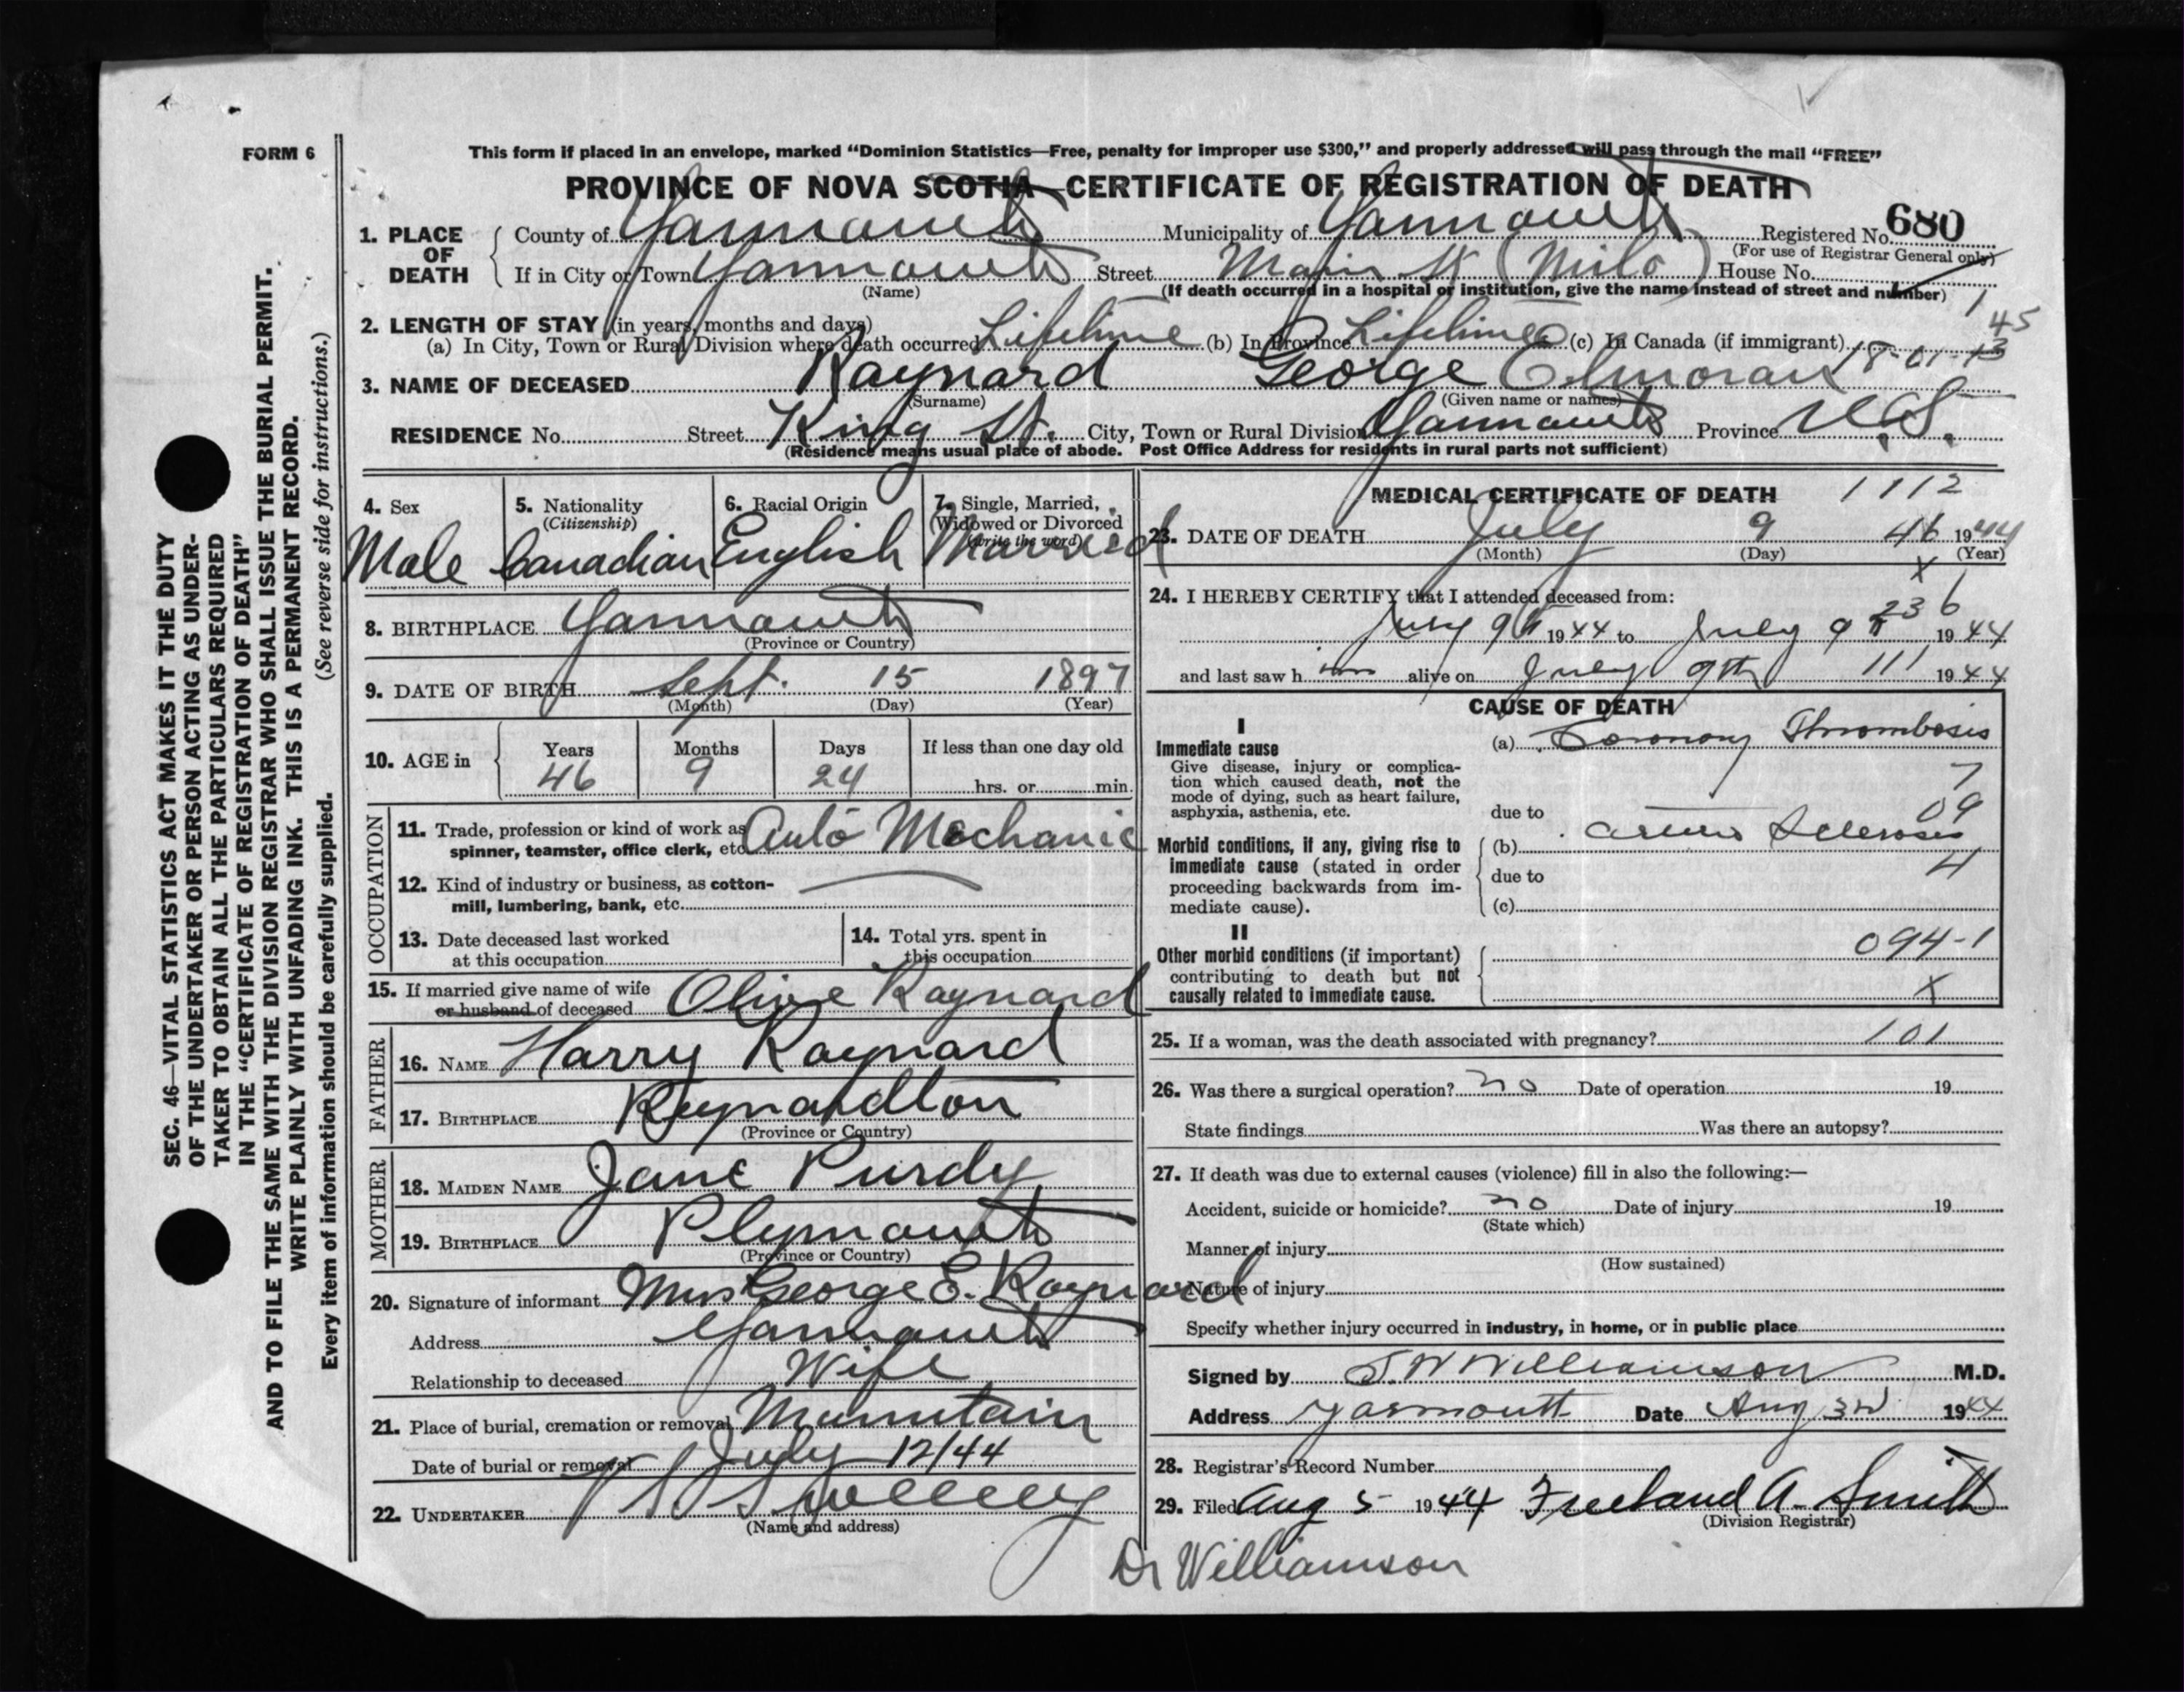 FORM 6
This form if placed in an envelope, marked "Dominion Statistics—Free, penalty for improper use $300," and properly addressed will pass through the mail "FREE"
PROVINCE OF NOVA SCOTIA—CERTIFICATE OF REGISTRATION OF DEATH
1. PLACE OF DEATH County of Yarmouth Municipality of Yarmouth Registered No. 680
(For use of Registrar General only)
If in City or Town Yarmouth Street Main St (Milo) House No.
(Name) (If death occurred in a hospital or institution, give the name instead of street and number) 1
2. LENGTH OF STAY (in years, months and days) 45
(a) In City, Town or Rural Division where death occurred Lifetime (b) In Province Lifetime (c) In Canada (if immigrant)
3. NAME OF DECEASED Raynard George Elmoran
(Surname) (Given name or names)
RESIDENCE No. Street King St. City, Town or Rural Division Yarmouth Province N.S.
(Residence means usual place of abode. Post Office Address for residents in rural parts not sufficient)
4. Sex Male
5. Nationality (Citizenship) Canadian
6. Racial Origin English
7. Single, Married, Widowed or Divorced (Write the word) Married
8. BIRTHPLACE Yarmouth
(Province or Country)
9. DATE OF BIRTH Sept. 15 1897
(Month) (Day) (Year)
10. AGE in Years 46 Months 9 Days 24 If less than one day old
hrs. or min.
OCCUPATION
11. Trade, profession or kind of work as Auto Mechanic
spinner, teamster, office clerk, etc.
12. Kind of industry or business, as cotton-
mill, lumbering, bank, etc.
13. Date deceased last worked
at this occupation
14. Total yrs. spent in
this occupation
15. If married give name of wife
or husband of deceased Olive Raynard
FATHER
16. NAME Harry Raynard
17. BIRTHPLACE Raynardton
(Province or Country)
MOTHER
18. MAIDEN NAME Jane Purdy
19. BIRTHPLACE Plymouth
(Province or Country)
20. Signature of informant Mrs George E. Raynard
Address Yarmouth
Relationship to deceased Wife
21. Place of burial, cremation or removal Mountain
Date of burial or removal July 12/44
22. UNDERTAKER V S Sweeney
(Name and address)
MEDICAL CERTIFICATE OF DEATH 1112
23. DATE OF DEATH July 9 46 1944
(Month) (Day) (Year)
X
24. I HEREBY CERTIFY that I attended deceased from:
236
July 9th 1944 to July 9th 1944
and last saw him alive on July 9th 111 1944
CAUSE OF DEATH
I
Immediate cause (a) Coronary Thrombosis
Give disease, injury or complica-
tion which caused death, not the
mode of dying, such as heart failure,
asphyxia, asthenia, etc.
7
due to 09
Morbid conditions, if any, giving rise to
immediate cause (stated in order
proceeding backwards from im-
mediate cause).
(b) Arterio Sclerosis
due to 4
(c)
II
094-1
Other morbid conditions (if important)
contributing to death but not
causally related to immediate cause.
X
25. If a woman, was the death associated with pregnancy? 101
26. Was there a surgical operation? no Date of operation 19
State findings Was there an autopsy?
27. If death was due to external causes (violence) fill in also the following:—
Accident, suicide or homicide? no Date of injury 19
(State which)
Manner of injury
(How sustained)
Nature of injury
Specify whether injury occurred in industry, in home, or in public place
Signed by S.W Williamson M.D.
Address Yarmouth Date Aug 3rd 1944
28. Registrar's Record Number
29. Filed Aug 5 1944 Freeland A. Smith
(Division Registrar)
Dr Williamson
SEC. 46—VITAL STATISTICS ACT MAKES IT THE DUTY
OF THE UNDERTAKER OR PERSON ACTING AS UNDER-
TAKER TO OBTAIN ALL THE PARTICULARS REQUIRED
IN THE "CERTIFICATE OF REGISTRATION OF DEATH"
AND TO FILE THE SAME WITH THE DIVISION REGISTRAR WHO SHALL ISSUE THE BURIAL PERMIT.
WRITE PLAINLY WITH UNFADING INK. THIS IS A PERMANENT RECORD.
Every item of information should be carefully supplied. (See reverse side for instructions.)